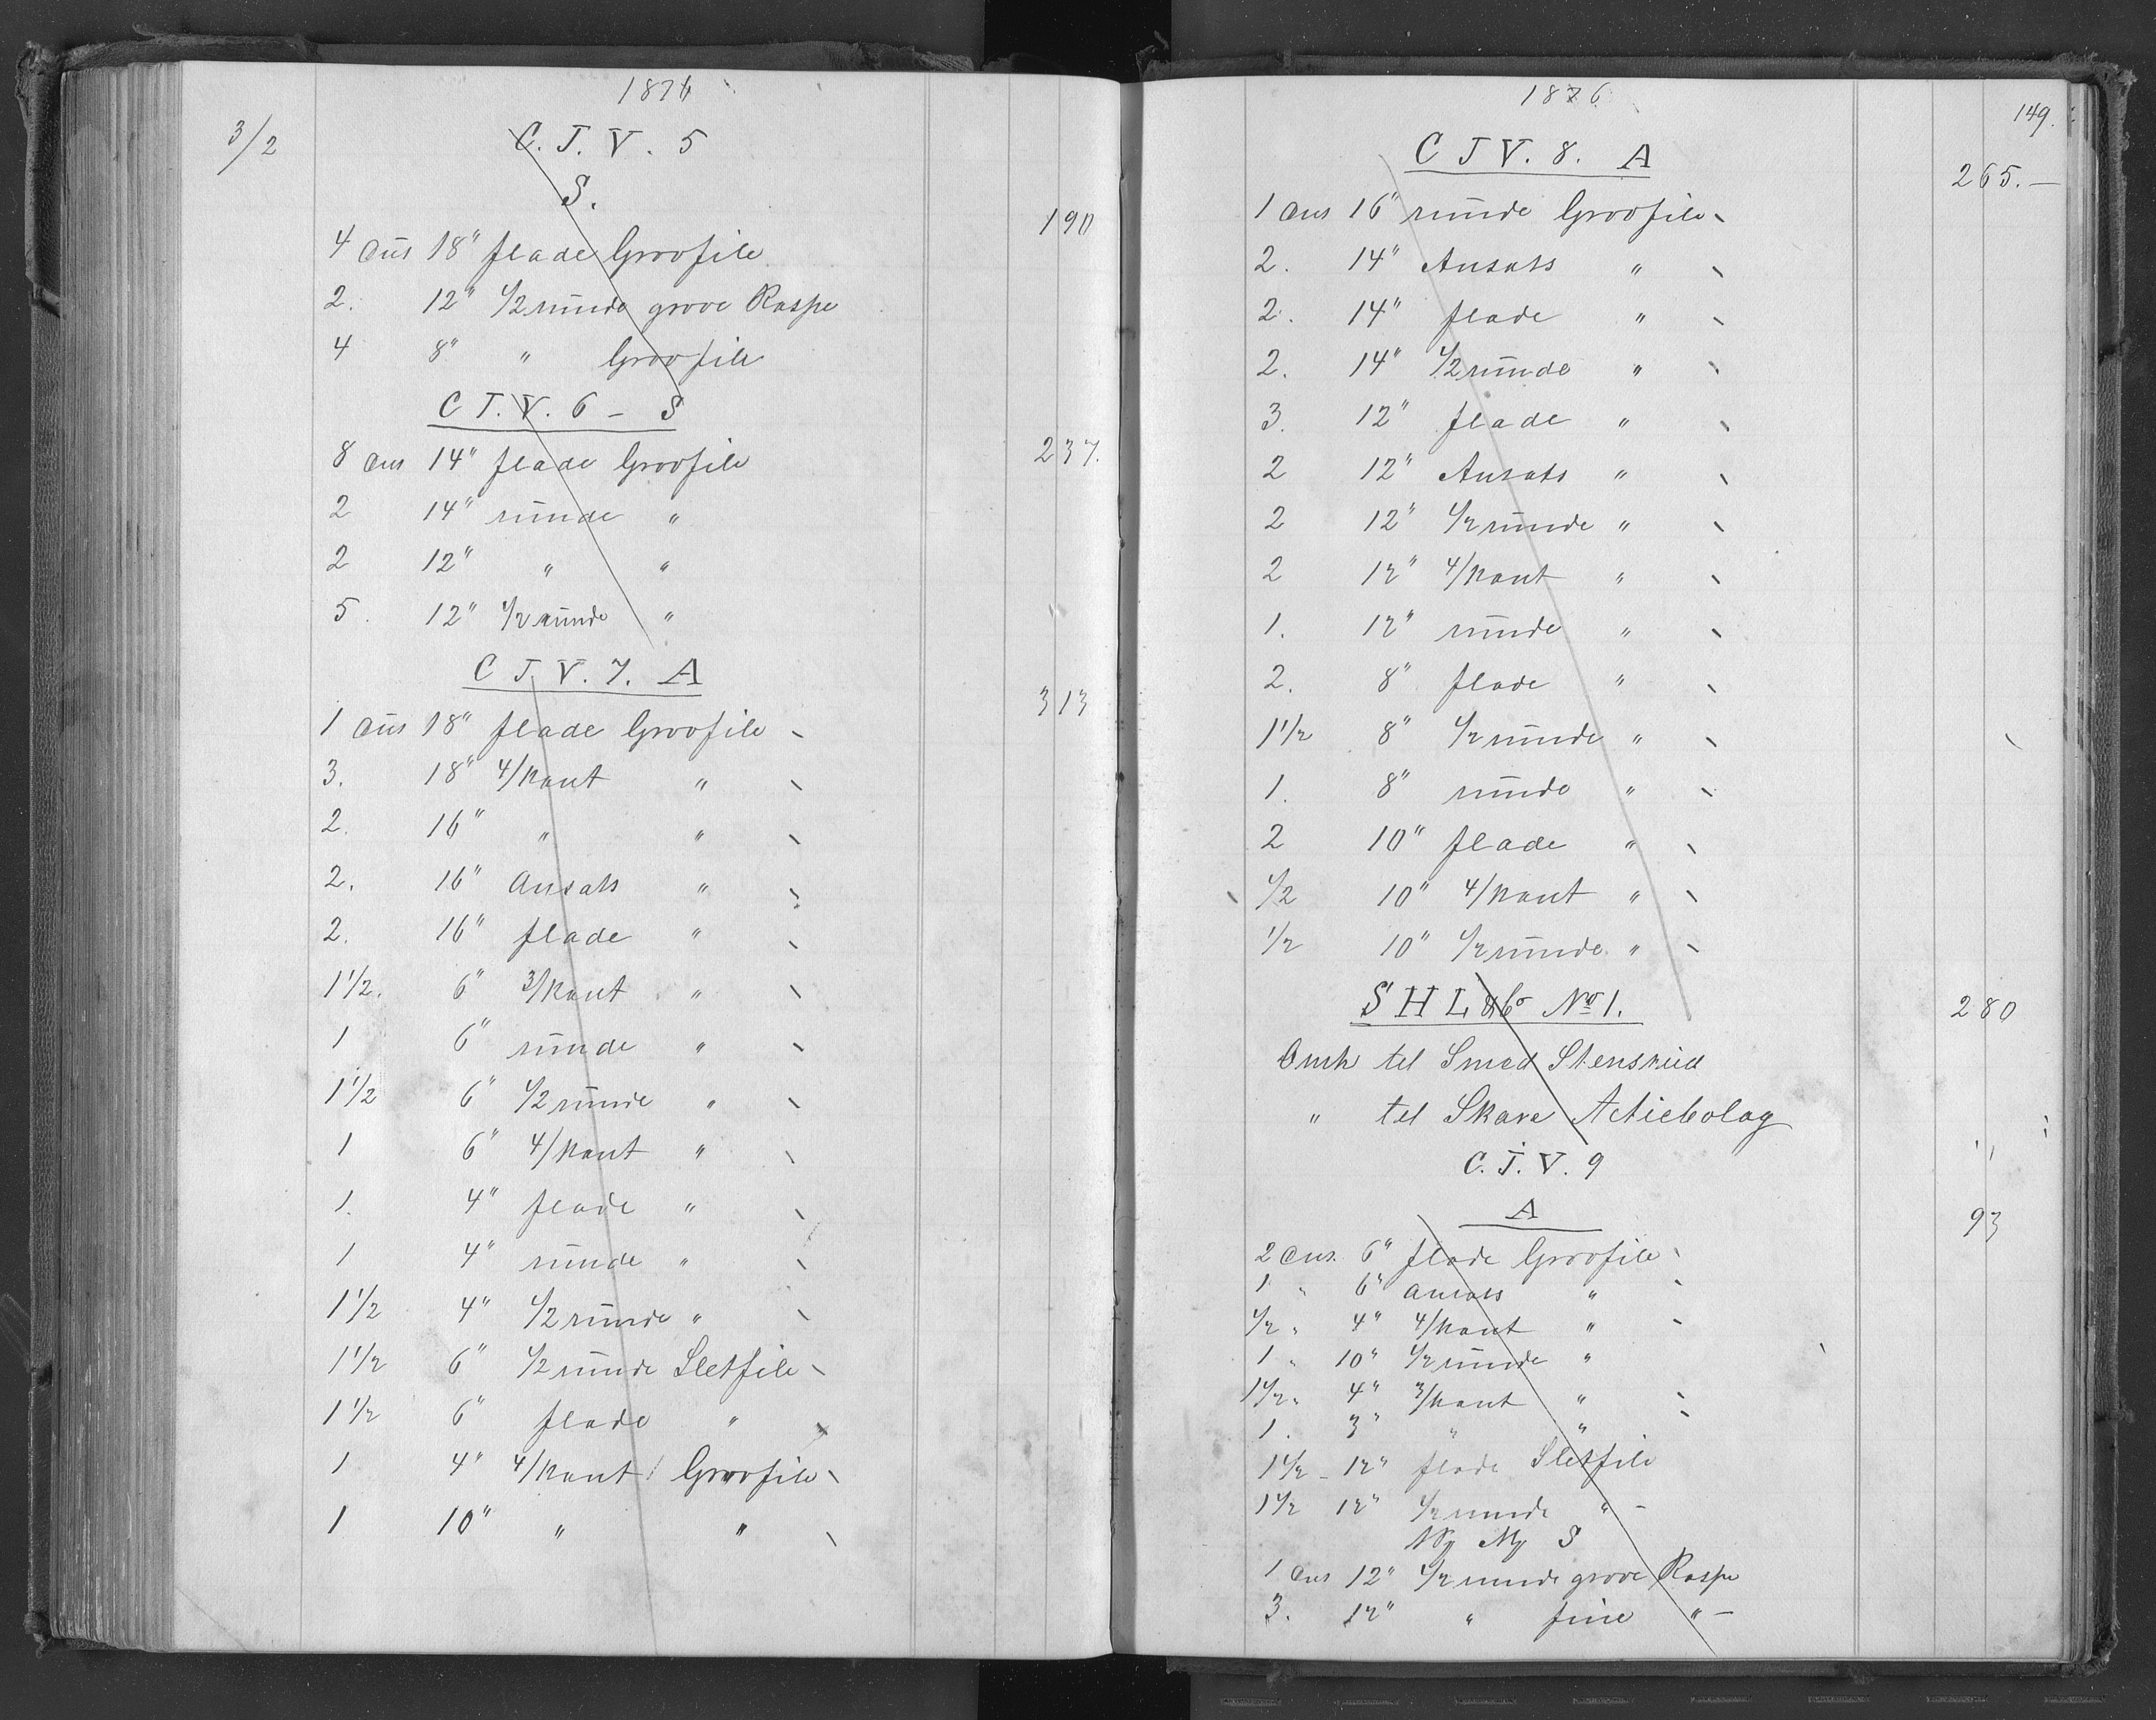 1876
3/2
C. J. V. 5
S.
190
4 dus 18" flade Grovfile
2. 12" 1/2 runde grove Raspe
4 8" " Grovfile
C J. V. 6 - S
237.
8 dus 14" flade Grovfile
2 14" runde "
2 12" " "
5. 12" 1/2 runde "
C J. V. 7. A
313
1 dus 18" flade Grovfile
3. 18" 4/kant "
2. 16" " "
2. 16" Ansats "
2. 16" flade "
1 1/2. 6" 3/kant "
1 6" runde "
1 1/2 6" 1/2 runde "
1 6" 4/kant "
1. 4" flade "
1 4" runde "
1 1/2 4" 1/2 runde "
1 1/2 6" 1/2 runde Sletfile
1 1/2 6" flade "
1 4" 4/kant Grovfile
1 10" " "
1876
149.
C J V. 8. A
265.—
1 dus 16" runde Grovfile
2. 14" Ansats "
2. 14" flade "
2. 14" 1/2 runde "
3. 12" flade "
2 12" Ansats "
2 12" 1/2 runde "
2 12" 4/kant "
1. 12" runde "
2. 8" flade "
1 1/2 8" 1/2 runde "
1. 8" runde "
2 10" flade "
1/2 10" 4/kant "
1/2 10" 1/2 runde "
S H L & Co No 1.
280
Omh til Smed Stensrud
" til Skara Actiebolag
C. J. V. 9
A
93
2 dus. 6" flade Grovfile
1 " 6" Ansats "
1/2 " 4" 4/kant "
1 " 10" 1/2 runde "
1 1/2 " 4" 3/kant "
1. 3" " "
1 1/2 - 12" flade Sletfile
1 1/2 12" 1/2 runde " -
S
1 dus 12" 1/2 runde grove Raspe
3. 12" " fine " -